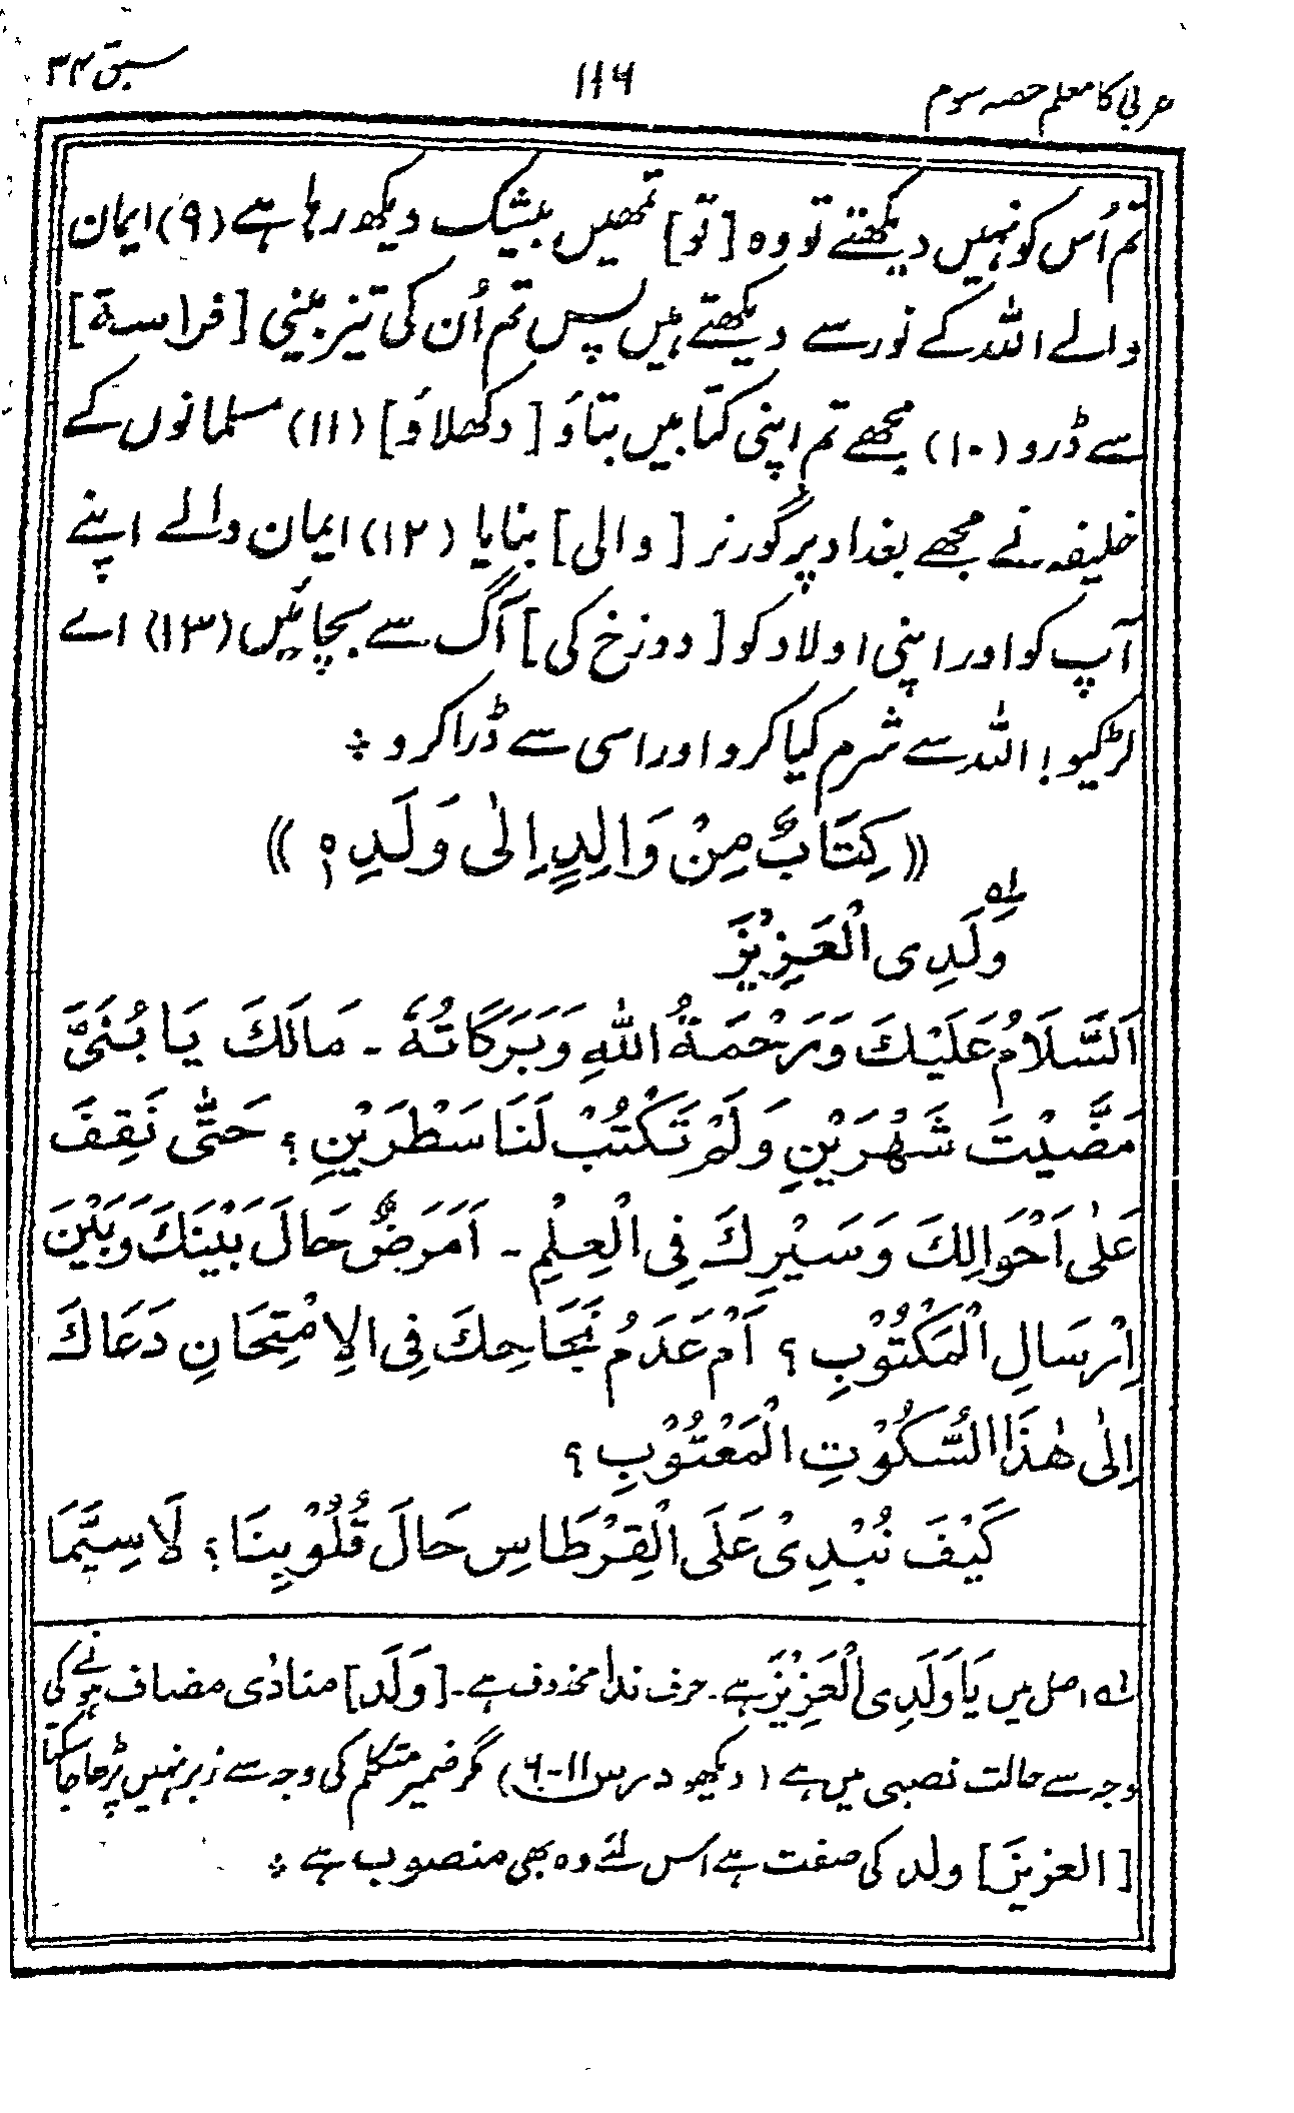 عربی کا معلم حصہ سوم ۱۱۶ سبق ۳۴
تم اُس کو نہیں دیکھتے تو وہ [تو] تمھیں بیشک دیکھ رہا ہے (۹) ایمان
والے اللہ کے نور سے دیکھتے ہیں پس تم اُن کی تیز بینی [فراسة]
سے ڈرو (۱۰) مجھے تم اپنی کتابیں بتاؤ [دکھلاؤ] (۱۱) مسلمانوں کے
خلیفہ نے مجھے بغداد پر گورنر [والی] بنایا (۱۲) ایمان والے اپنے
آپ کو اور اپنی اولاد کو [دوزخ کی] آگ سے بچائیں (۱۳) اے
لڑکیو! اللہ سے شرم کیا کرو اور اسی سے ڈرا کرو ÷
((كِتَابٌ مِنْ وَالِدٍ اِلٰى وَلَدِهٖ))
وَلَدِى الْعَزِيْزَ لہ
اَلسَّلَامُ عَلَيْكَ وَرَحْمَةُ اللّٰهِ وَبَرَكَاتُهٗ ۔ مَالَكَ يَا بُنَىَّ
مَضَّيْتَ شَهْرَيْنِ وَلَمْ تَكْتُبْ لَنَا سَطْرَيْنِ ؟ حَتّٰى نَقِفَ
عَلٰى اَحْوَالِكَ وَسَيْرِكَ فِى الْعِلْمِ ۔ اَمَرَضٌ حَالَ بَيْنَكَ وَبَيْنَ
اِرْسَالِ الْمَكْتُوْبِ ؟ اَمْ عَدَمُ نَجَاحِكَ فِى الِامْتِحَانِ دَعَاكَ
اِلٰى هٰذَا السُّكُوْتِ الْمَعْتُوْبِ ؟
كَيْفَ نُبْدِىْ عَلَى الْقِرْطَاسِ حَالَ قُلُوْبِنَا ؟ لَا سِيَّمَا
لہ اصل میں يَا وَلَدِى الْعَزِيْزَ ہے۔ حرف ندا محذوف ہے۔ [وَلَدَ] منادٰی مضاف ہونے کی
وجہ سے حالت نصبی میں ہے (دیکھو درس ۱۱-۶) مگر ضمیر متکلم کی وجہ سے زبر نہیں پڑھا جا سکتا
[العزیزَ] ولد کی صفت ہے اس لئے وہ بھی منصوب ہے ÷